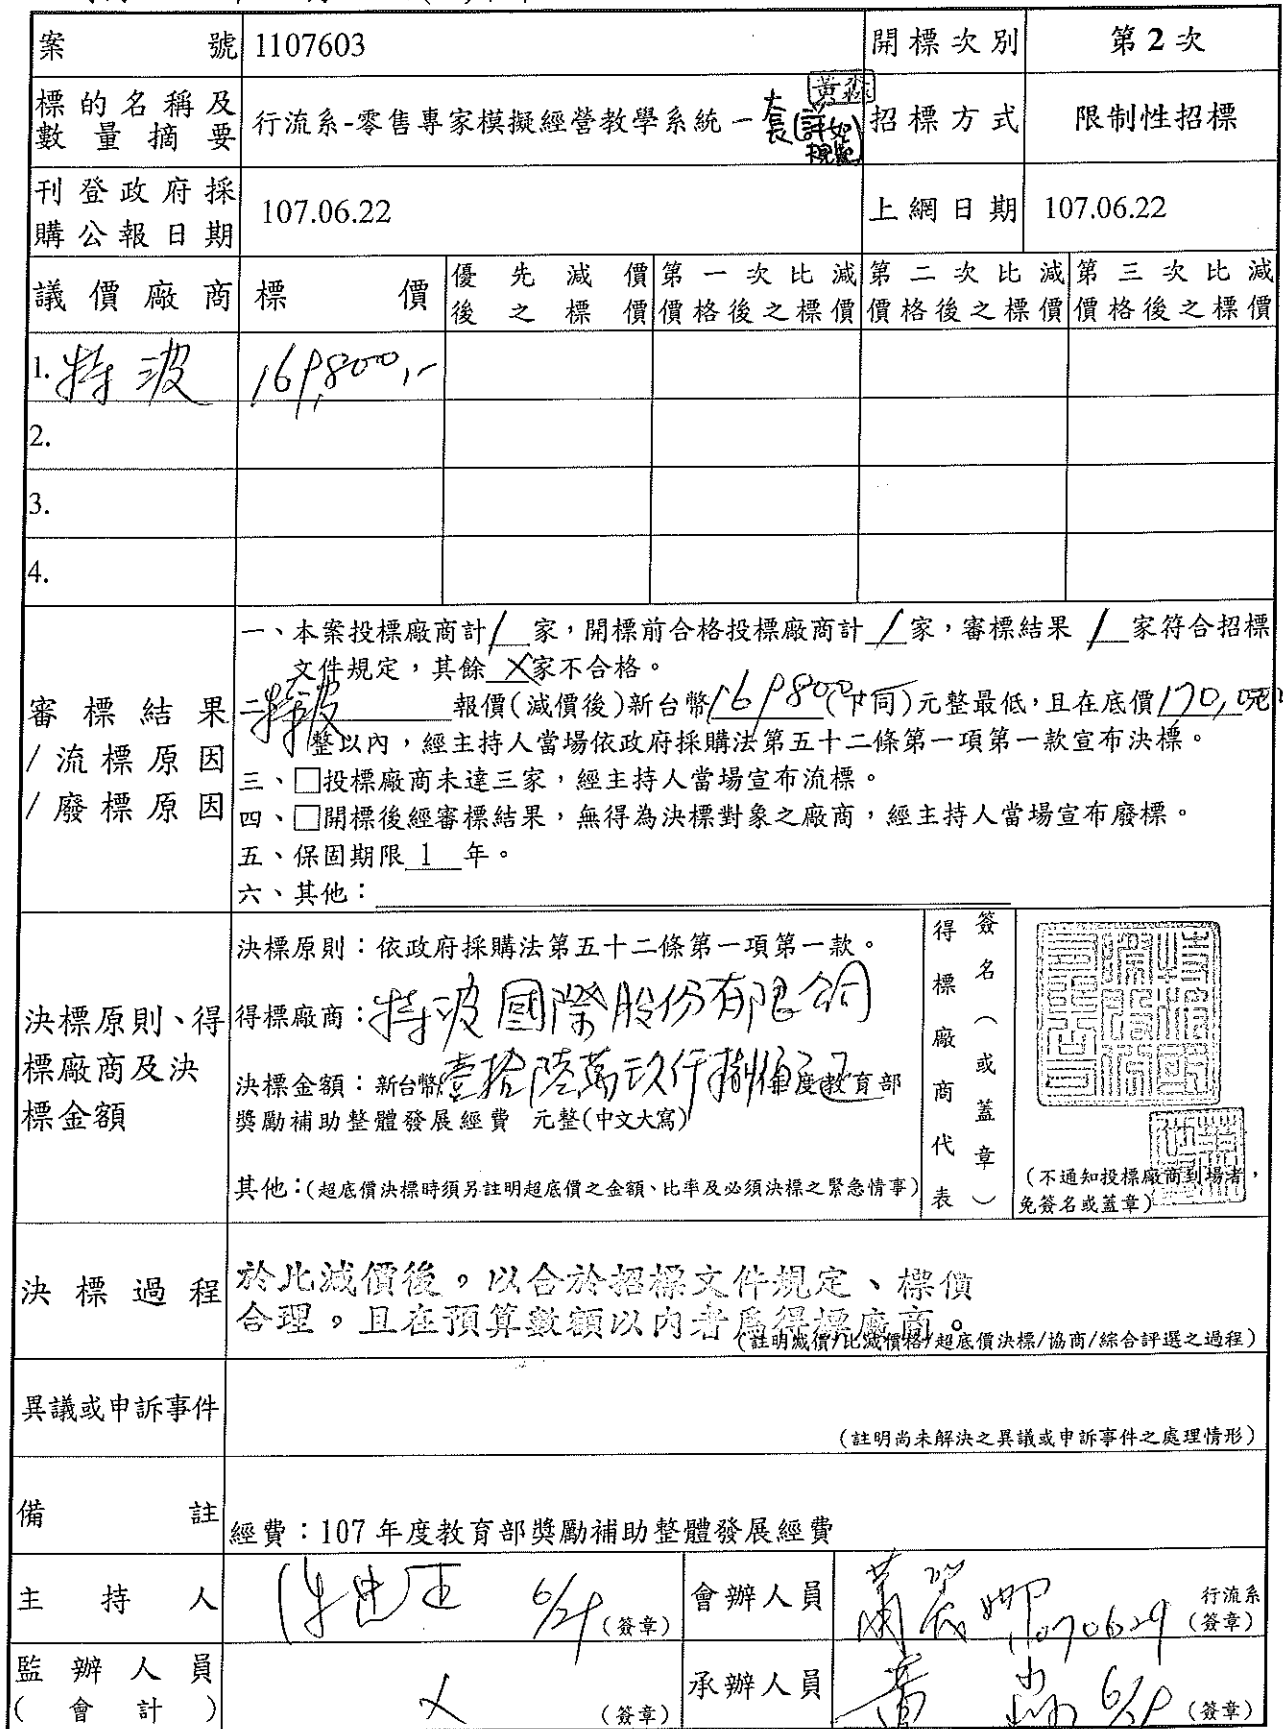 案號 1107603 開標次別 第2次
標的名稱及數量摘要 行流系-零售專家模擬經營教學系統一套(詳如規範) 黃淼 招標方式 限制性招標
刊登政府採購公報日期 107.06.22 上網日期 107.06.22
議價廠商 標價 優先減價後之標價 第一次比減價格後之標價 第二次比減價格後之標價 第三次比減價格後之標價
1. 特波 169,800,-
2.
3.
4.
審標結果/流標原因/廢標原因
一、本案投標廠商計 1 家,開標前合格投標廠商計 1 家,審標結果 1 家符合招標
文件規定,其餘 X 家不合格。
二、特波 報價(減價後)新台幣169,800(下同)元整最低,且在底價170,000元
整以內,經主持人當場依政府採購法第五十二條第一項第一款宣布決標。
三、□投標廠商未達三家,經主持人當場宣布流標。
四、□開標後經審標結果,無得為決標對象之廠商,經主持人當場宣布廢標。
五、保固期限 1 年。
六、其他:
決標原則、得標廠商及決標金額
決標原則:依政府採購法第五十二條第一項第一款。
得標廠商:特波國際股份有限公司
決標金額:新台幣壹拾陸萬玖仟捌佰元正 年度教育部
獎勵補助整體發展經費 元整(中文大寫)
其他:(超底價決標時須另註明超底價之金額、比率及必須決標之緊急情事)
得標廠商代表
簽名(或蓋章)
(不通知投標廠商到場者,
免簽名或蓋章)
決標過程
於比減價後,以合於招標文件規定、標價
合理,且在預算數額以內者為得標廠商。
(註明減價/比減價格/超底價決標/協商/綜合評選之過程)
異議或申訴事件
(註明尚未解決之異議或申訴事件之處理情形)
備註
經費:107 年度教育部獎勵補助整體發展經費
主持人 6/29 (簽章) 會辦人員 1070629 行流系
(簽章)
監辦人員(會計) X (簽章) 承辦人員 黃淼 6/29 (簽章)